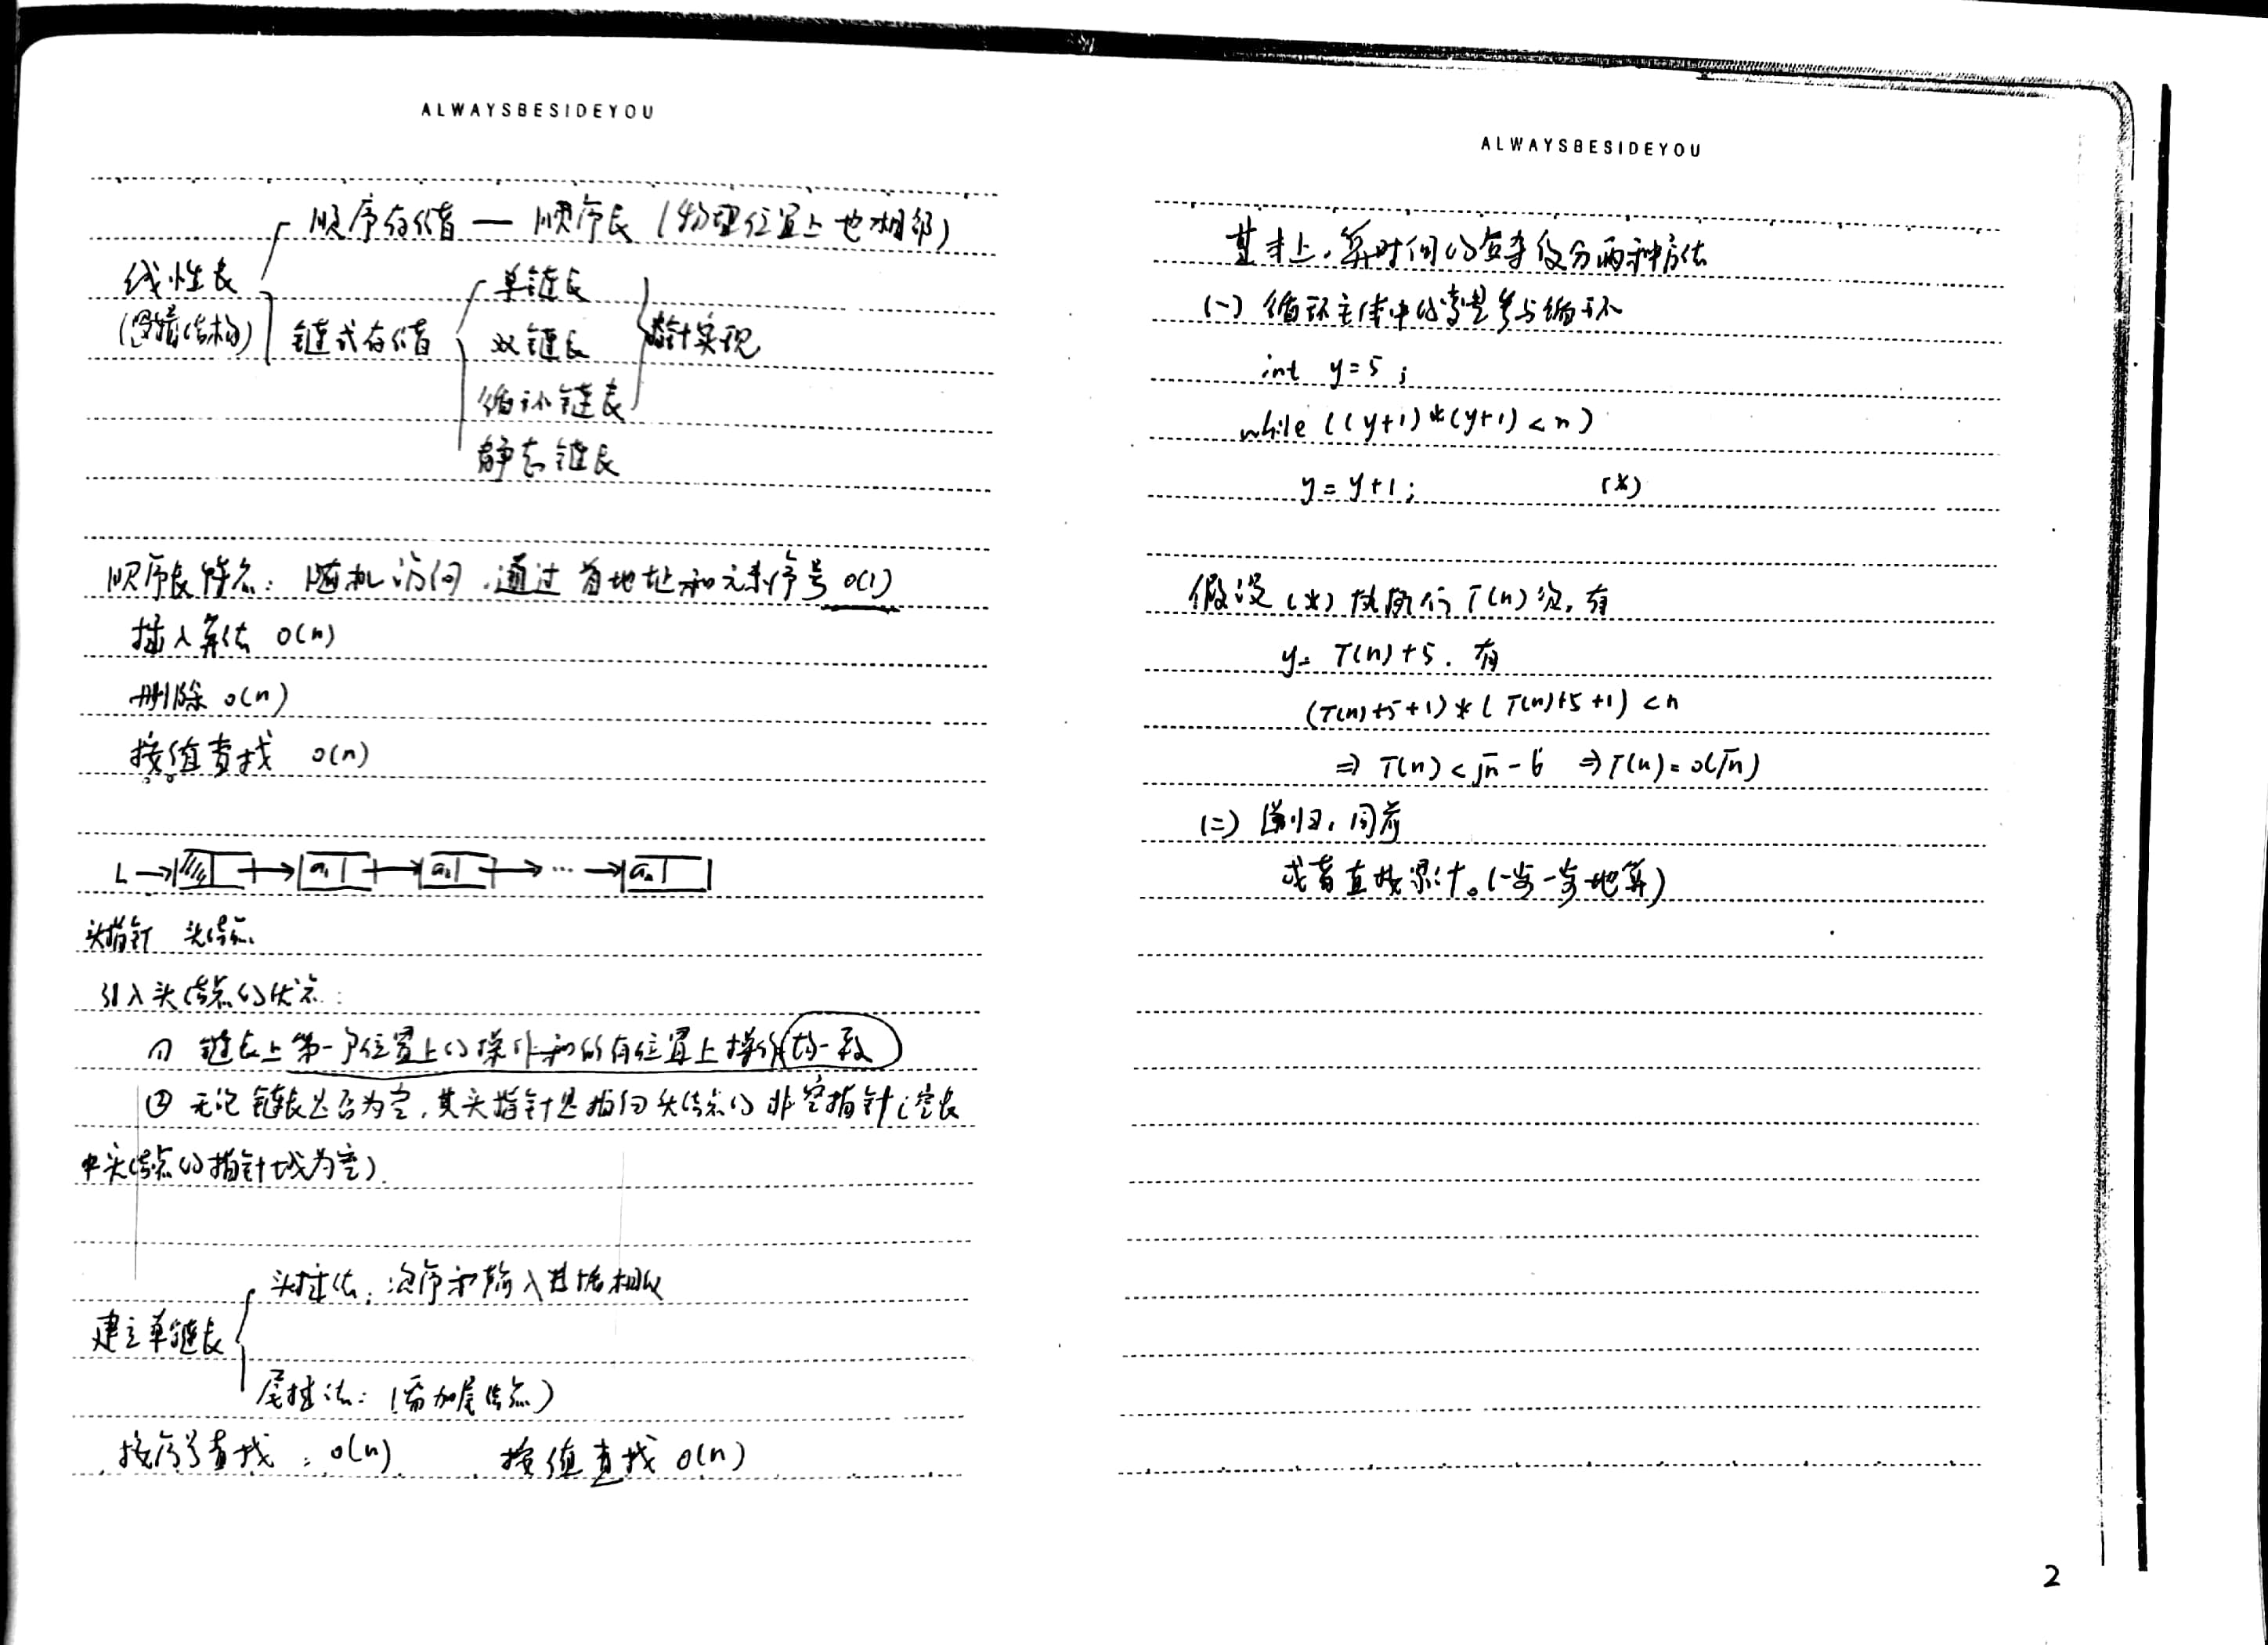 ALWAYSBESIDEYOU
顺序存储 — 顺序表 (物理位置上也相邻)
线性表
(逻辑结构)
链式存储
单链表
双链表
循环链表
指针实现
静态链表
顺序表特点: 随机访问,通过首地址和元素序号 O(1)
插入算法 O(n)
删除 O(n)
按值查找 O(n)
L → a₁ → a₂ → ... → aₙ
头指针 头结点
引入头结点的优点:
① 链表上第一个位置上的操作和所有位置上操作均一致
② 无论链表是否为空,其头指针是指向头结点的非空指针(空表
中头结点的指针域为空).
头插法: 次序和输入数据相反
建立单链表
尾插法: (需加尾结点)
按序号查找: O(n) 按值查找 O(n)
ALWAYSBESIDEYOU
基本上,算时间的复杂度分两种方法
(一) 循环主体中的变量参与循环
int y=5;
while ((y+1)*(y+1)<n)
y=y+1; (*)
假设 (*) 执行 T(n) 次,有
y= T(n)+5. 有
(T(n)+5+1)*(T(n)+5+1)<n
⇒ T(n)<√n-6 ⇒ T(n)=O(√n)
(二) 递归,同前
或者直接累计。(一步一步地算)
2